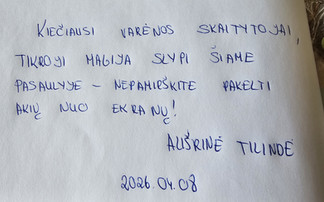 KIEČIAUSI VARĖNOS SKAITYTOJAI,
TIKROJI MAGIJA SLYPI ŠIAME
PASAULYJE – NEPAMIRŠKITE PAKELTI
AKIŲ NUO EKRANŲ!
AUŠRINĖ TILINDĖ
2026.04.08